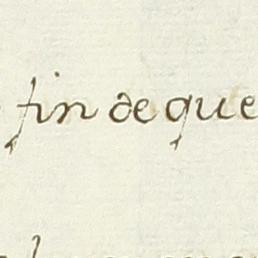 fin de que